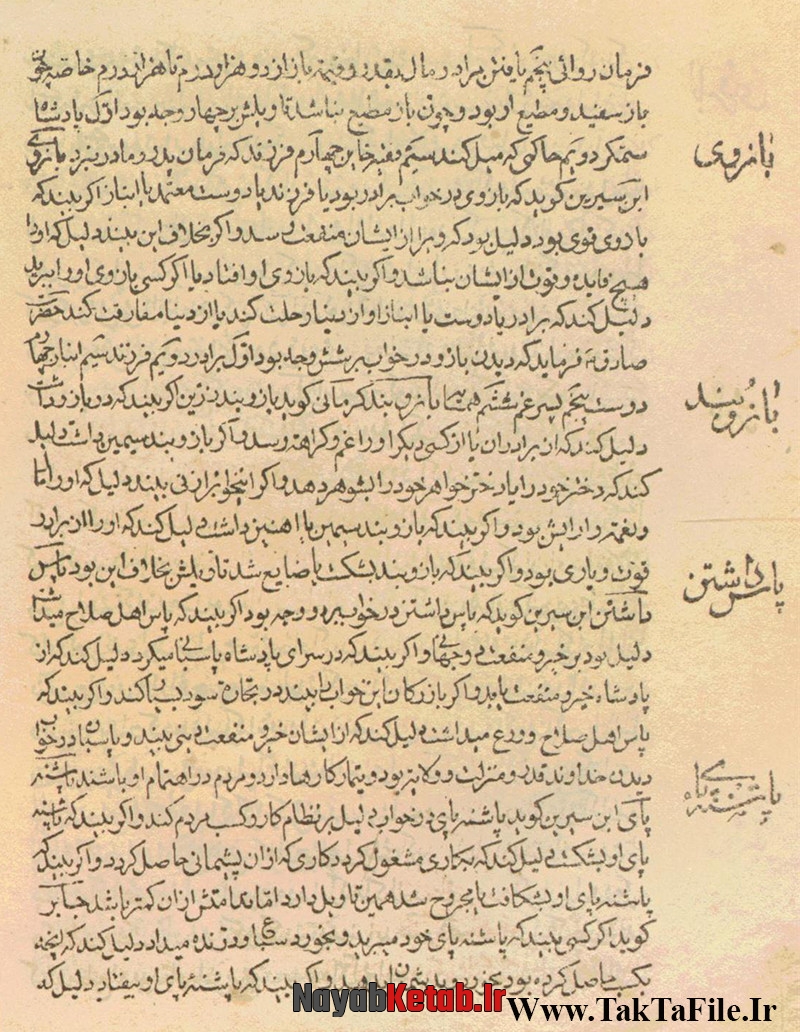 فرمان روائی پنجم یافتن مراد و مال بقدر و قیمة باز از دو هزار درم تا هزار درم خاصه چون
باز سفید و مطیع او بود و چون باز مطیع نباشد تاویلش بر چهار وجه بود اوّل پادشاه
ستمکر دویم حاکمی که میل کند سیّم فقیه خاین چهارم فرزند که فرمان پدر و مادر نبرد بازوی
ابن سیرین کوید که بازوی در خواب برادر بود یا فرزند یا دوست معتمد یا انباز اکر بیند که
بازوی قوی بود دلیل بود که ویرا از ایشان منفعت رسد و اکر بخلاف این بیند دلیل که او را
هیچ فایده و قوت از ایشان نباشد و اکر بیند که بازوی او افتاد یا اکر کسی بازوی او را ببرید
دلیل کند که برادر یا دوست یا انباز او از دنیا رحلت کند یا از دنیا مفارقت کند حضرت
صادق ع فرماید که دیدن بازو در خواب بر شش وجه بود اوّل برادر دویم فرزند سیّم انباز چهارم
دوست پنجم پسر عم ششم همسایه بازو بند کرمانی کوید بازو بند زرین اکر بیند که در بازو داشت
دلیل کند که از برادران یا از کسی دیکر او را غم و کراهت رسد و اکر بازو بند سیمین داشت دلیل
کند که دختر خود را یا دختر خواهر خود را بشوهر دهد و اکر این خواب زنی بیند دلیل که او را
و نعمة و آرایش بود و اکر بیند که بازو بند سیمین یا آهنین داشت دلیل کند که او را از برادر
قوت و یاری بود و اکر بیند که بازو بند بشکست یا ضایع شد تاویلش بخلاف این بود پاس
داشتن ابن سیرین کوید که پاس داشتن در خواب بر دو وجه بود اکر بیند که پاس اهل صلاح میداشت
دلیل بود بر خیر و منفعت دو جهانی و اکر بیند که در سرای پادشاه پاسبانی میکرد دلیل کند که از
پادشاه خیر و منفعت یابد و اکر بازرکان این خواب را بیند در تجارة سود بسیار کند و اکر بیند که
پاس اهل صلاح و ورع میداشت دلیل کند که از ایشان خیر و منفعت دینی بیند و پاسبان در خواب
دیدن خداوند قدر و منزلت و ولایة بود و تیمار کارها دارد و مردم در اهتمام او باشند پاشنه
پای ابن سیرین کوید پاشنه پای در خواب دلیل بر نظام کار و کسب مردم کند و اکر بیند که پاشنه
پای او بشکست دلیل کند که بکاری مشغول کردد کاری که از ان پشیمانی حاصل کردد و اکر بیند که
پاشنه پای او بشکافت یا مجروح شد همین تاویل دارد اما ندامتش از ان کمتر باشد جابر
کوید اکر کسی بیند که پاشنه پای خود میبرید و بخورد سباع و درنده میداد دلیل کند که آنچه
بکسب حاصل کرده بود بخورد و بدشمنان دهد و اکر بیند که پاشنهٔ پای او بیفتاد دلیل که
بازوی
بازو بند
پاس داشتن
پاشنه پای
NayabKetab.Ir
Www.TakTaFile.Ir